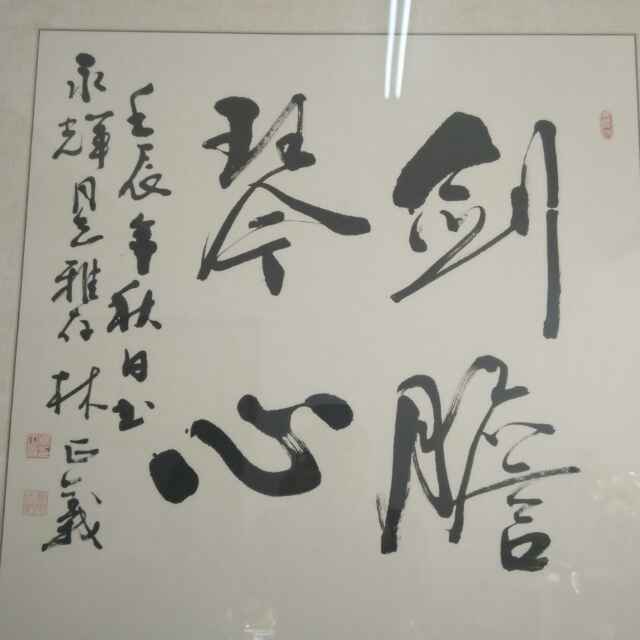 劍膽
琴心
壬辰年秋日书
永輝同志雅存 林正義